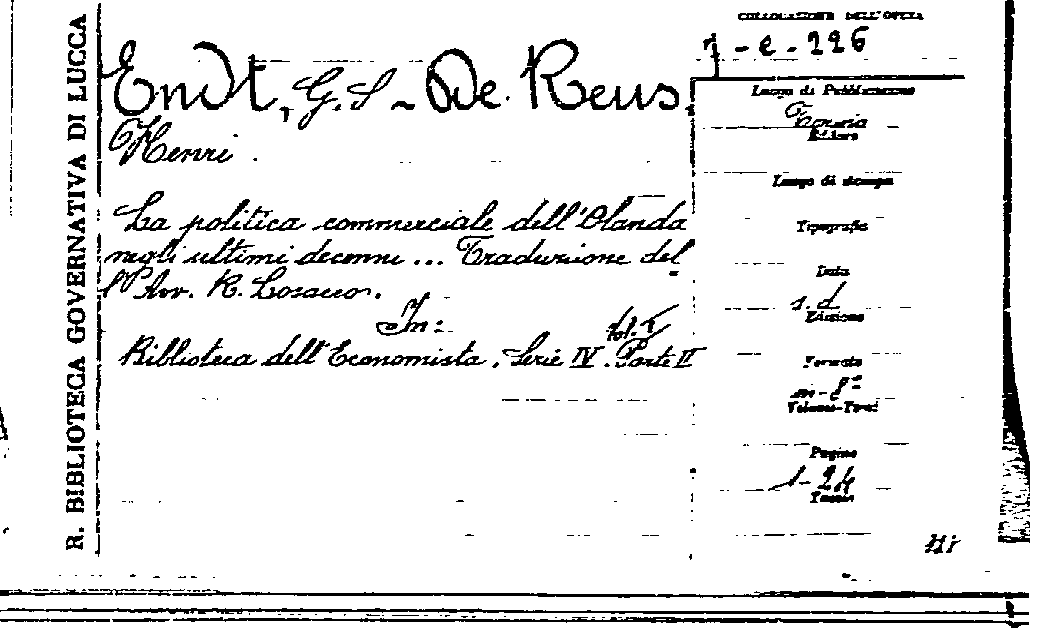 R. BIBLIOTECA GOVERNATIVA DI LUCCA
COLLOCAZIONE DELL'OPERA
7-e-226
Endt, G. S - De Reus,
Henri.
La politica commerciale dell'Olanda
negli ultimi decenni ... Traduzione del
l'Avv. R. Losacco.
In:
Vol. I
Biblioteca dell'Economista. Serie IV. Parte II
Luogo di Pubblicazione
Torino
Editore
Luogo di stampa
Tipografia
Data
s. d
Edizione
Formato
in-8º
Volumi-Tomi
Pagine
1-24
Tavole